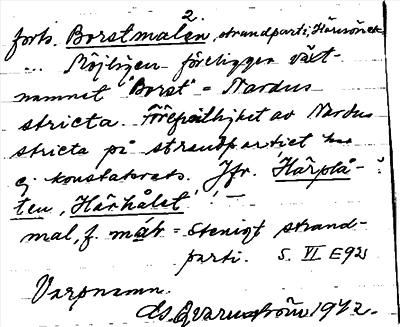 2.
forts. Borstmalen, strandparti, Härnön
... Möjligen föreligger växt-
namnet "Borst" = Nardus
stricta. Förefintlighet av Nardus
stricta på strandpartiet har
ej konstaterats. Jfr. Härplå-
ten, Hårhålet! —
mal, f. mår = stenigt strand-
parti. S. VI E 92
Varpnamn.
Es. Qvarnström 1972.